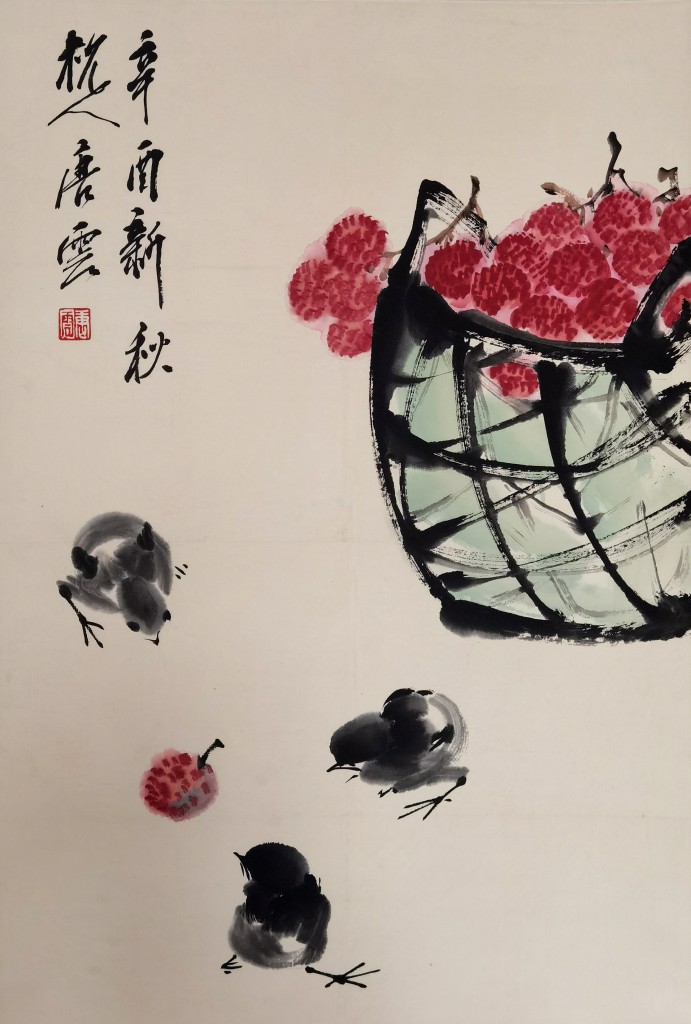 辛酉新秋
杭人唐雲
唐雲